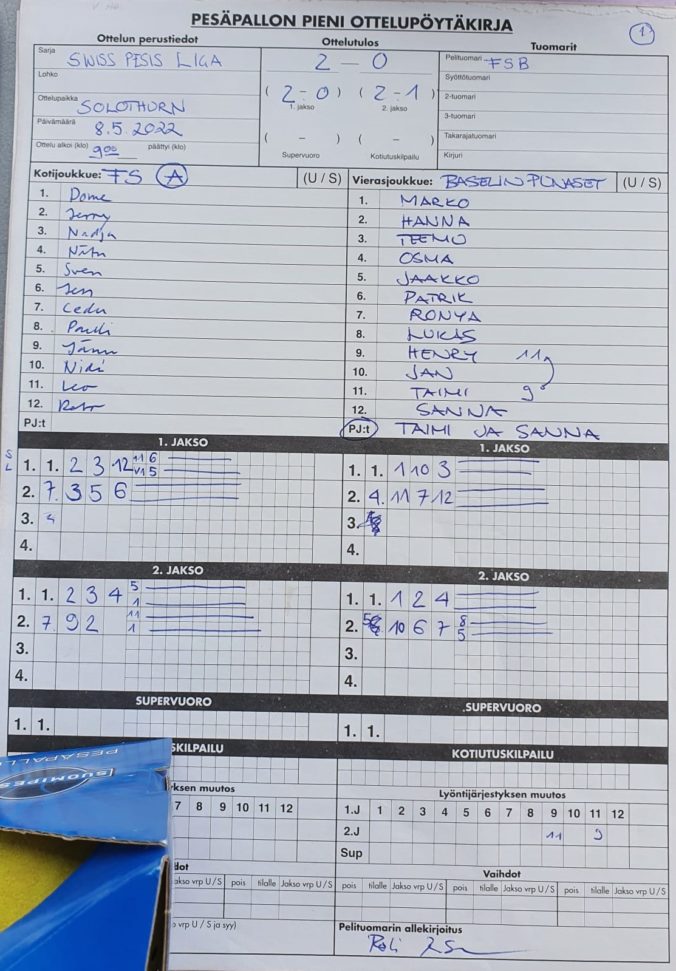 PESÄPALLON PIENI OTTELUPÖYTÄKIRJA
1
Ottelun perustiedot
Ottelutulos
Tuomarit
Sarja SWISS PESIS LIGA
2 – 0
Pelituomari FSB
Lohko
Syöttötuomari
Ottelupaikka SOLOTHURN
( 2 – 0 ) ( 2 – 1 )
1. jakso 2. jakso
2-tuomari
3-tuomari
Päivämäärä 8.5 2022
( – ) ( – )
Takarajatuomari
Ottelu alkoi (klo) 9oo päättyi (klo)
Supervuoro Kotiutuskilpailu
Kirjuri
Kotijoukkue: FS A (U / S)
Vierasjoukkue: BASELIN PUNASET (U / S)
1. Dome
2. Jerry
3. Nadja
4.
5. Sven
6. Jen
7. Cedu
8.
9.
10. Nidi
11. Leo
12.
PJ:t
1. MARKO
2. HANNA
3. TEEMU
4. OSMA
5. JAAKKO
6. PATRIK
7. RONYA
8. LUKAS
9. HENRY 11
10. JAN
11. TAIMI 9
12. SANNA
PJ:t TAIMI JA SANNA
1. JAKSO
S
L
1. 1. 2 3 12 11 6
V1 5
2. 7. 3 5 6
3. 4
4.
1. JAKSO
1. 1. 1 10 3
2. 4. 11 7 12
3.
4.
2. JAKSO
1. 1. 2 3 4 5
1
2. 7. 9 2 11
1
3.
4.
2. JAKSO
1. 1. 1 2 4
2. 10 6 7 8
5
3.
4.
SUPERVUORO
1. 1.
SUPERVUORO
1. 1.
SKILPAILU
KOTIUTUSKILPAILU
PESÄPALL
SUOMIPES
ksen muutos
7 8 9 10 11 12
Lyöntijärjestyksen muutos
1.J 1 2 3 4 5 6 7 8 9 10 11 12
2.J 11 9
Sup
dot
jakso vrp U/S pois tilalle Jakso vrp U/S
Vaihdot
pois tilalle Jakso vrp U/S pois tilalle Jakso vrp U/S pois tilalle Jakso vrp U/S
o vrp U / S ja syy)
Pelituomarin allekirjoitus